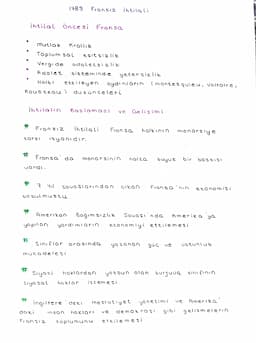 1789 Fransız İhtilali
İhtilal Öncesi Fransa
• Mutlak Krallık
• Toplumsal eşitsizlik
• Vergide adaletsizlik
• Adalet sisteminde yetersizlik
• Halkı etkileyen aydınların (Montesquieu, Voltaire,
Rousseau) düşünceleri
İhtilalin Başlaması ve Gelişimi
Fransız İhtilali Fransa halkının monarşiye
karşı isyanıdır.
Fransa'da monarşinin halka büyük bir baskısı
vardı.
7 yıl savaşlarından çıkan Fransa'nın ekonomisi
bozulmuştu.
Amerikan Bağımsızlık Savaşı'nda Amerika'ya
yapılan yardımların ekonomiyi etkilemesi
Sınıflar arasında yaşanan güç ve üstünlük
mücadelesi
Siyasi haklardan yoksun olan burjuva sınıfının
siyasal haklar istemesi
İngiltere'deki Meşrutiyet yönetimi ve Amerika'
daki insan hakları ve demokrasi gibi gelişmelerin
Fransız toplumunu etkilemesi